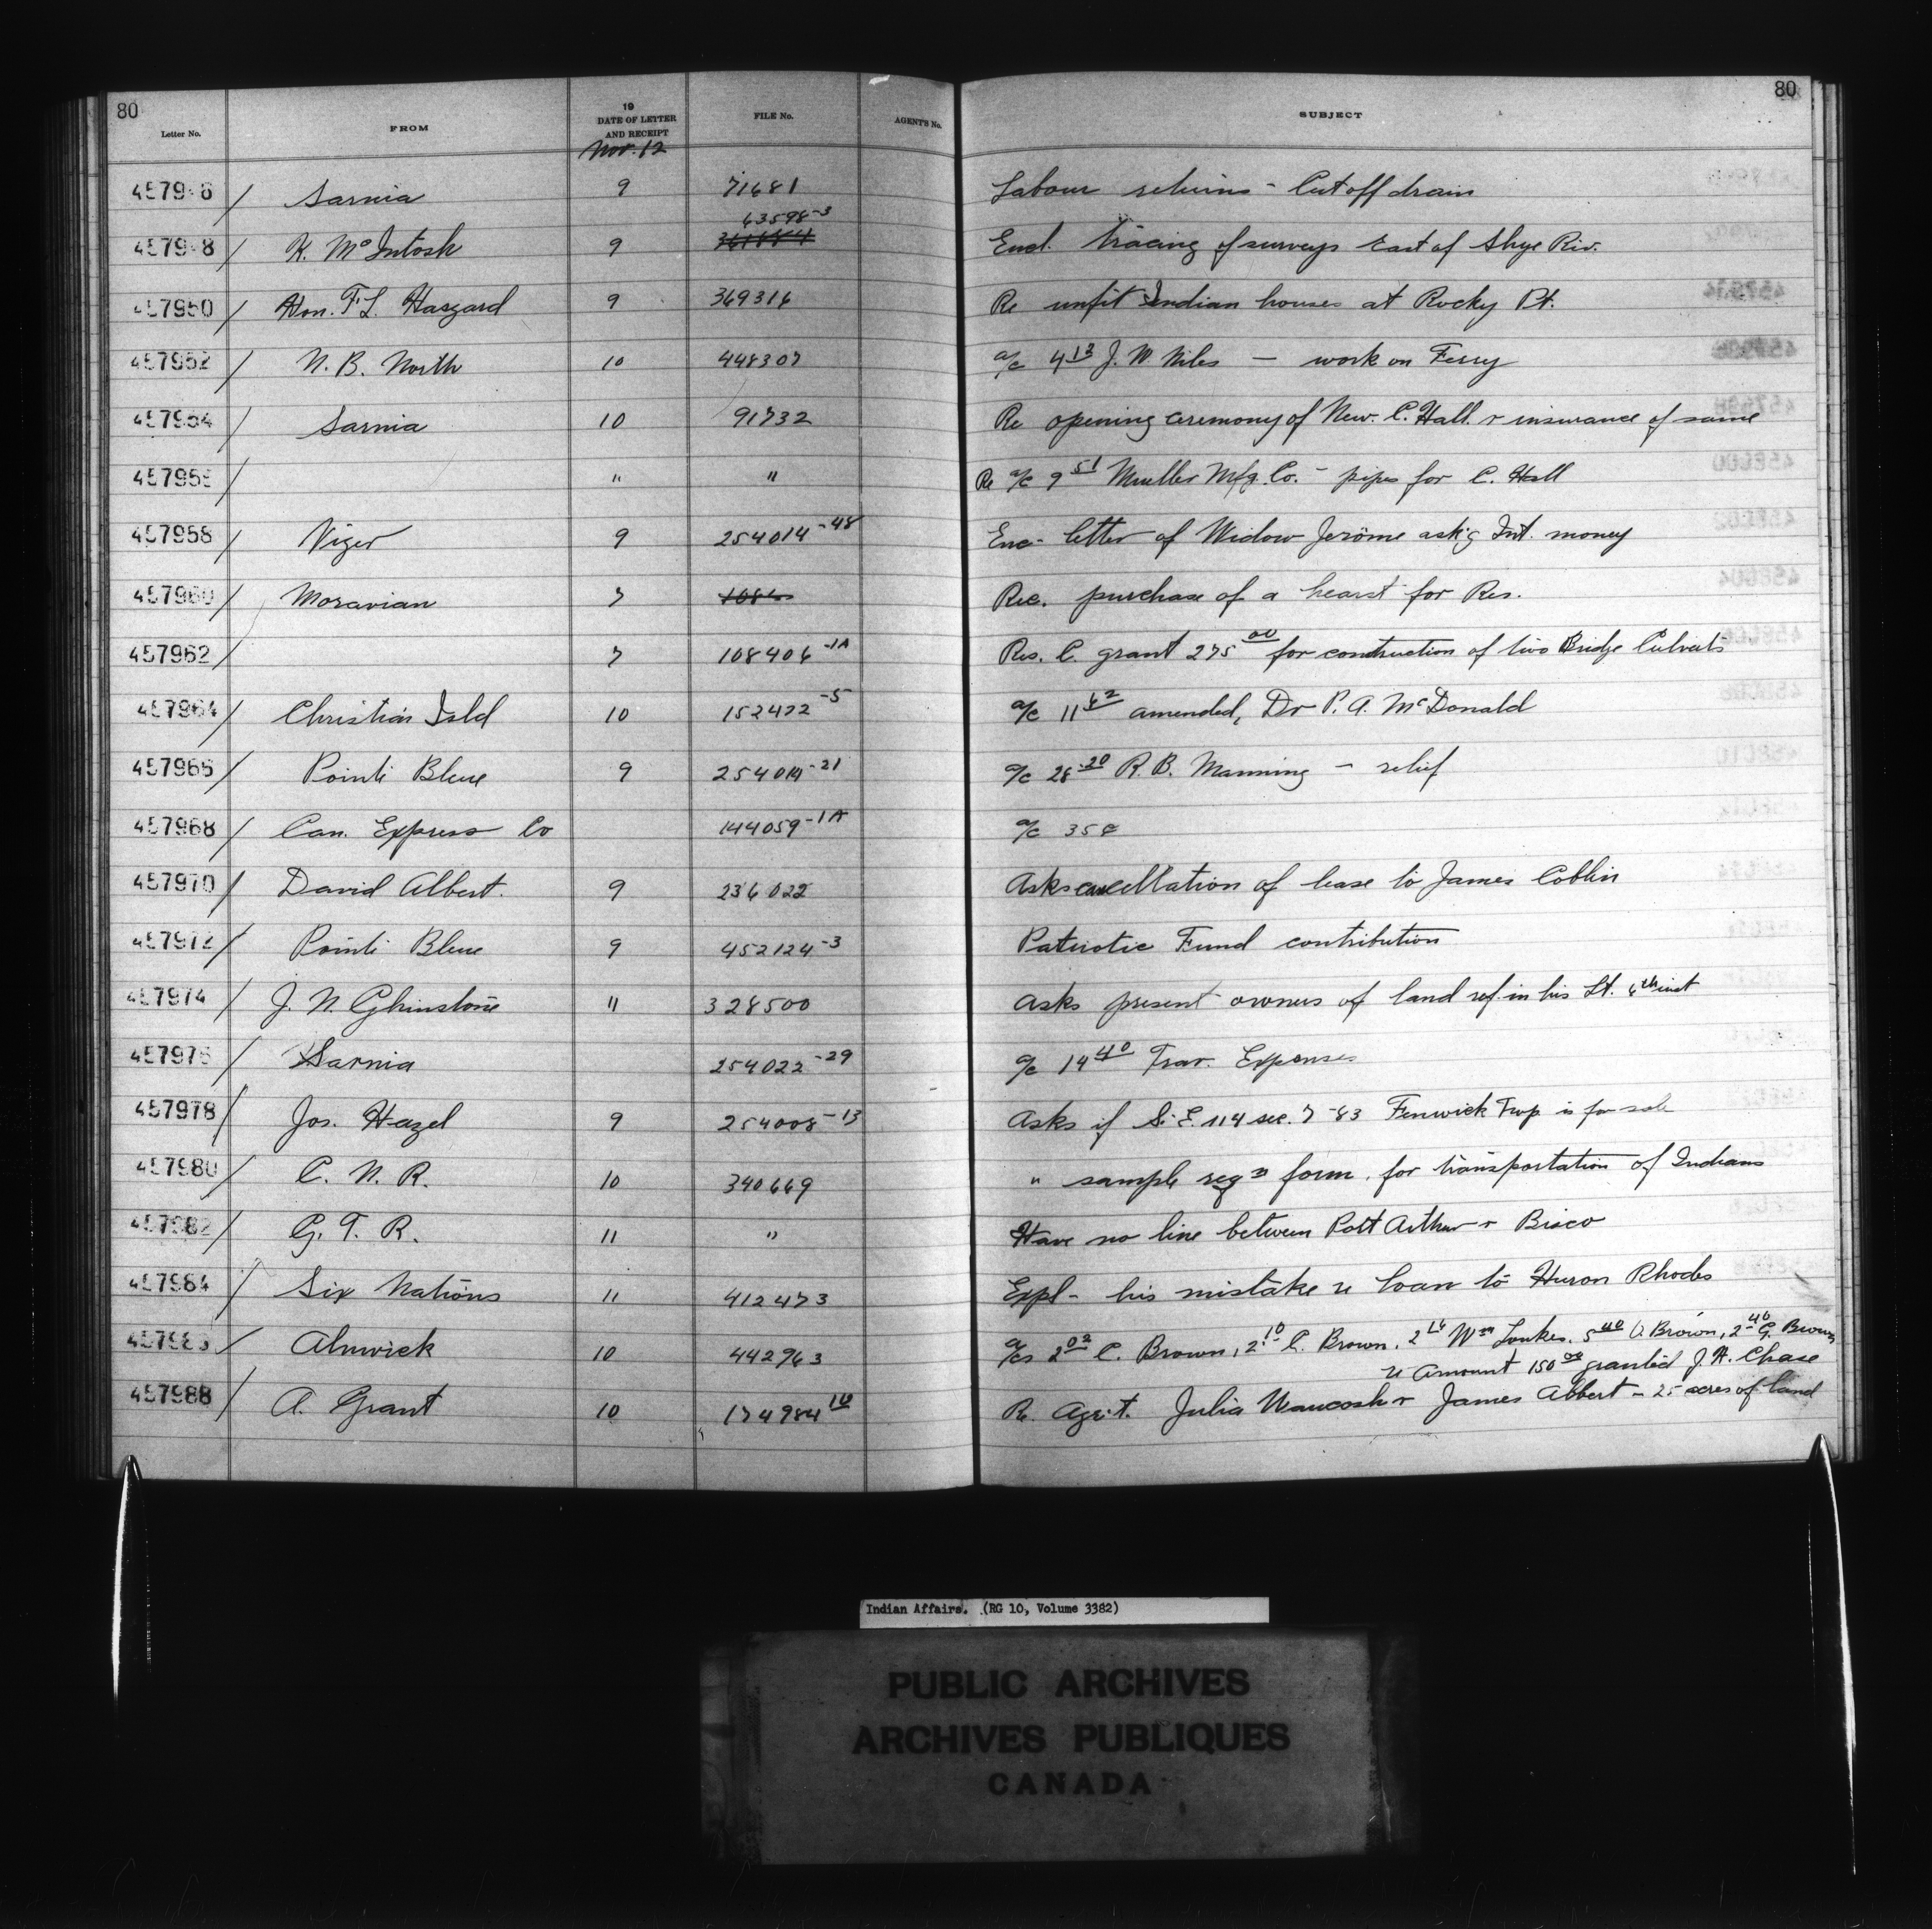 80
80
Letter No. FROM 19 DATE OF LETTER AND RECEIPT FILE No. AGENT'S No. SUBJECT
Nov. 12
457946 / Sarnia 9 71681 Labour returns - Cut off drain
63598-3
457948 / K. McIntosh 9 Encl. tracing of surveys East of Skye Riv.
457950 / Hon. F.L. Haszard 9 369316 Re unfit Indian houses at Rocky Pt.
457952 / N. B. North 10 448307 a/c 4 13 J. W Niles — work on Ferry
457954 / Sarnia 10 91732 Re opening ceremony of New. C. Hall. & insurance of same
457956 / " " Re a/c 9 51 Mueller Mfg. Co. - pipes for C. Hall
457958 / Viger 9 254014-48 Enc- letter of Widow Jerôme ask'g Int. money
457960 / Moravian 7 1086 Rec. purchase of a hearst for Res.
457962 / 7 108406-1A Res. C. grant 275 00 for construction of two Bridge Culverts
457964 / Christian Isld 10 152422-5 a/c 11 62 amended, Dr P. A. McDonald
457966 / Pointe Bleue 9 254014-21 a/c 28.20 R. B. Manning - relief
457968 / Can. Express Co 144059-1A a/c 35¢
457970 / David Albert. 9 236022 Asks cancellation of lease to James Coblin
457972 / Pointe Bleue 9 452124-3 Patriotic Fund contribution
457974 / J. N. 11 328500 Asks present owners of land ref. in his Lt. 6th inst
457976 / Sarnia 254022-29 a/c 14 40 Trav. Expenses
457978 / Jos. Hazel 9 254008-13 Asks if S. E. 1/4 sec. 7-83 Fenwick Twp is for sale
457980 / C. N. R. 10 340669 " sample reqn form. for transportation of Indians
457982 / G. T. R. 11 " Have no line between Port Arthur & Bisco
457984 / Six Nations 11 412473 Expl- his mistake re loan to Huron Rhodes
457986 / Alnwick 10 442963 a/cs 2 02 C. Brown, 2.10 C. Brown, 2 16 Wm 5 40 Brown, 2-40 G. Brown
re Amount 150 00 granted J. H. Chase
457988 / A. Grant 10 174984 10 Re Agrt. Julia Wawcosh & James Abbert - 25 acres of land
Indian Affairs. (RG 10, Volume 3382)
PUBLIC ARCHIVES
ARCHIVES PUBLIQUES
CANADA